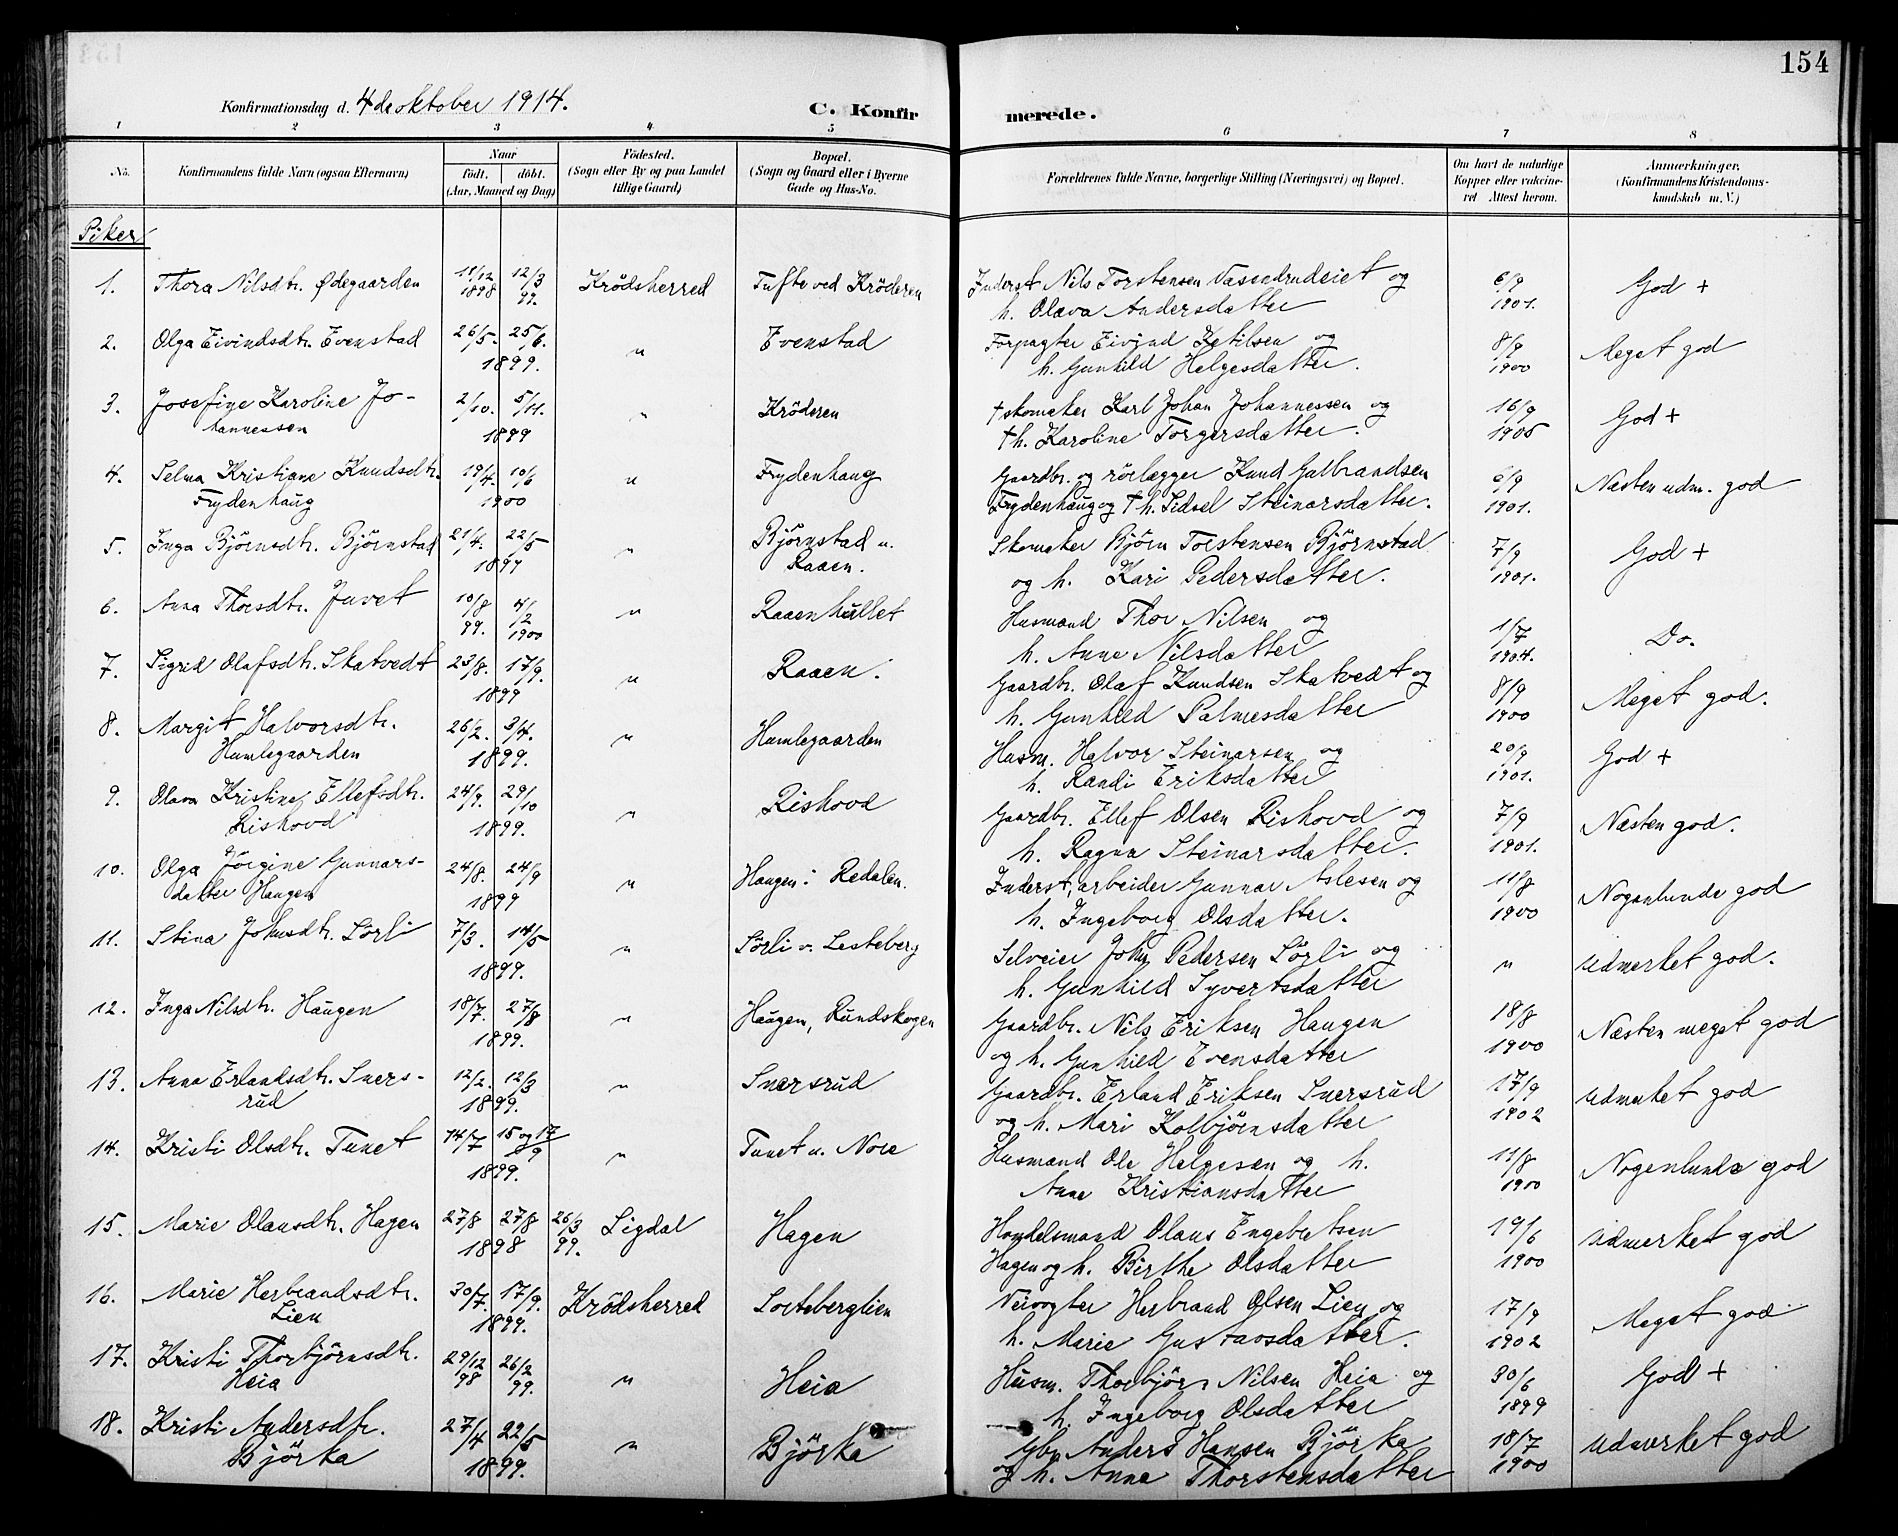 154
Konfirmationsdag d. 4de oktober 1914. C. Konfirmerede.
1 2 3 4 5 6 7 8
No. Konfirmandens fulde Navn (ogsaa Efternavn) Naar födt. döbt. (Aar, Maaned og Dag) Födested. (Sogn eller By og paa Landet tillige Gaard) Bopæl. (Sogn og Gaard eller i Byerne Gade og Hus-No. Forældrenes fulde Navne, borgerlige Stilling (Næringsvei) og Bopæl. Om havt de naturlige Kopper eller vakcineret Attest herom. Anmærkninger. (Konfirmandens Kristendomskundskab m. V.)
Piker
1. Thora Nilsdtr. Ødegaarden 11/12 1898 12/3 99. Krödsherred Tufte ved Kröderen Inderst Nils Torstensen Vassendrudeiet og 6/9 1901. God +
h. Olava Andersdatter
2. Olga Eivindsdtr. Evenstad 26/5. 25/6. 1899. " Evenstad Forpagter Eivind Ketilsen og 8/9 1900 Meget god
h. Gunhild Helgesdatter.
3. Josefine Karoline Jo- 2/10. 5/11. 1899 " Kröderen + skomaker Karl Johan Johannessen og 16/9 1905 God +
hannessen + h. Karoline Torgersdatter.
4. Selma Kristiane Knudsdtr. 19/4. 10/6 1900 " Frydenhaug Gaardbr. og rörlægger Knud Gulbrandsen 6/9 1901. Næsten udm. god
Frydenhaug Frydenhaug og + h. Sidsel Steinarsdatter.
5. Inga Björnsdtr. Björnstad 21/4. 22/5 1899 " Björnstad u. Raaen. Skomaker Björn Torstensen Björnstad 7/9 1901. God +
og h. Kari Pedersdatter.
6. Anna Thorsdtr. Juvet 10/8 99. 4/2 1900 " Raaenhullet Husmand Thor Nilsen og 1/7 1904. Do.
h. Anne Nilsdatter
7. Sigrid Olafsdtr. Skatvedt 23/8. 17/9. 1899 " Raaen. Gaardbr. Olaf Knudsen Skatvedt og 8/9 1900 Meget god.
h. Gunhild Palmesdatter
8. Margit Halvorsdtr. 26/2. 3/4. 1899. " Humlegaarden Husm. Halvor Steinarsen og 20/9 1901. God +
Humlegaarden h. Randi Eriksdatter
9. Olava Kristine Ellefsdtr. 24/9. 29/10 1899. " Rishovd Gaardbr. Ellef Olsen Rishovd og 7/9 1901. Næsten god.
Rishovd h. Ragna Steinarsdatter.
10. Olga Jörgine Gunnars- 24/8. 24/9 1899 " Haugen i Redalen. Inderst, arbeider Gunnar Aslesen og 11/8 1900 Nogenlunde god
datter Haugen h. Ingeborg Olsdatter.
11. Stina Johnsdtr. Sörli 7/3. 14/5 1899. " Sörli v. Lesteberg Selveier John Pedersen Sörli og " udmerket god.
h. Gunhild Syvertsdatter
12. Inga Nilsdtr. Haugen 18/7. 27/8 1899. " Haugen, Rundskogen Gaardbr. Nils Eriksen Haugen 18/8 1900 Næsten meget god
og h. Gunhild Evensdatter
13. Anna Erlandsdtr. Sners- 12/2. 12/3 1899. " Snersrud Gaardbr. Erland Eriksen Snersrud 17/9 1902 udmerket god
rud og h. Mari Kolbjörnsdatter
14. Kristi Olsdtr. Tunet 14/7 15 og 17/9 1899. " Tunet u. Nore Husmand Ole Helgesen og h. 11/8 1900 Nogenlunde god
Anne Kristiansdatter
15. Marie Olausdtr. Hagen 27/8 27/8 1898 26/3 99. Sigdal Hagen Handelsmand Olaus Engebretsen 19/6 1900 udmerket god
Hagen og h. Birthe Olsdatter
16. Marie Herbrandsdtr. 30/7. 17/9. 1899. Krödsherred Lesteberglien Veivogter Herbrand Olsen Lien og 17/9 1902 Meget god
Lien h. Marie Gustavsdatter.
17. Kristi Thorbjörnsdtr. 29/12 98 26/2 99. " Heia Husm. Thorbjörn Nilsen Heia og 30/6 1899 God +
Heia h. Ingeborg Olsdatter
18. Kristi Andersdtr. 27/4 22/5 1899. " Björka Gbr Anders Hansen Björka 18/7 1900 udmerket god
Björka og h. Anna Thorstensdatter